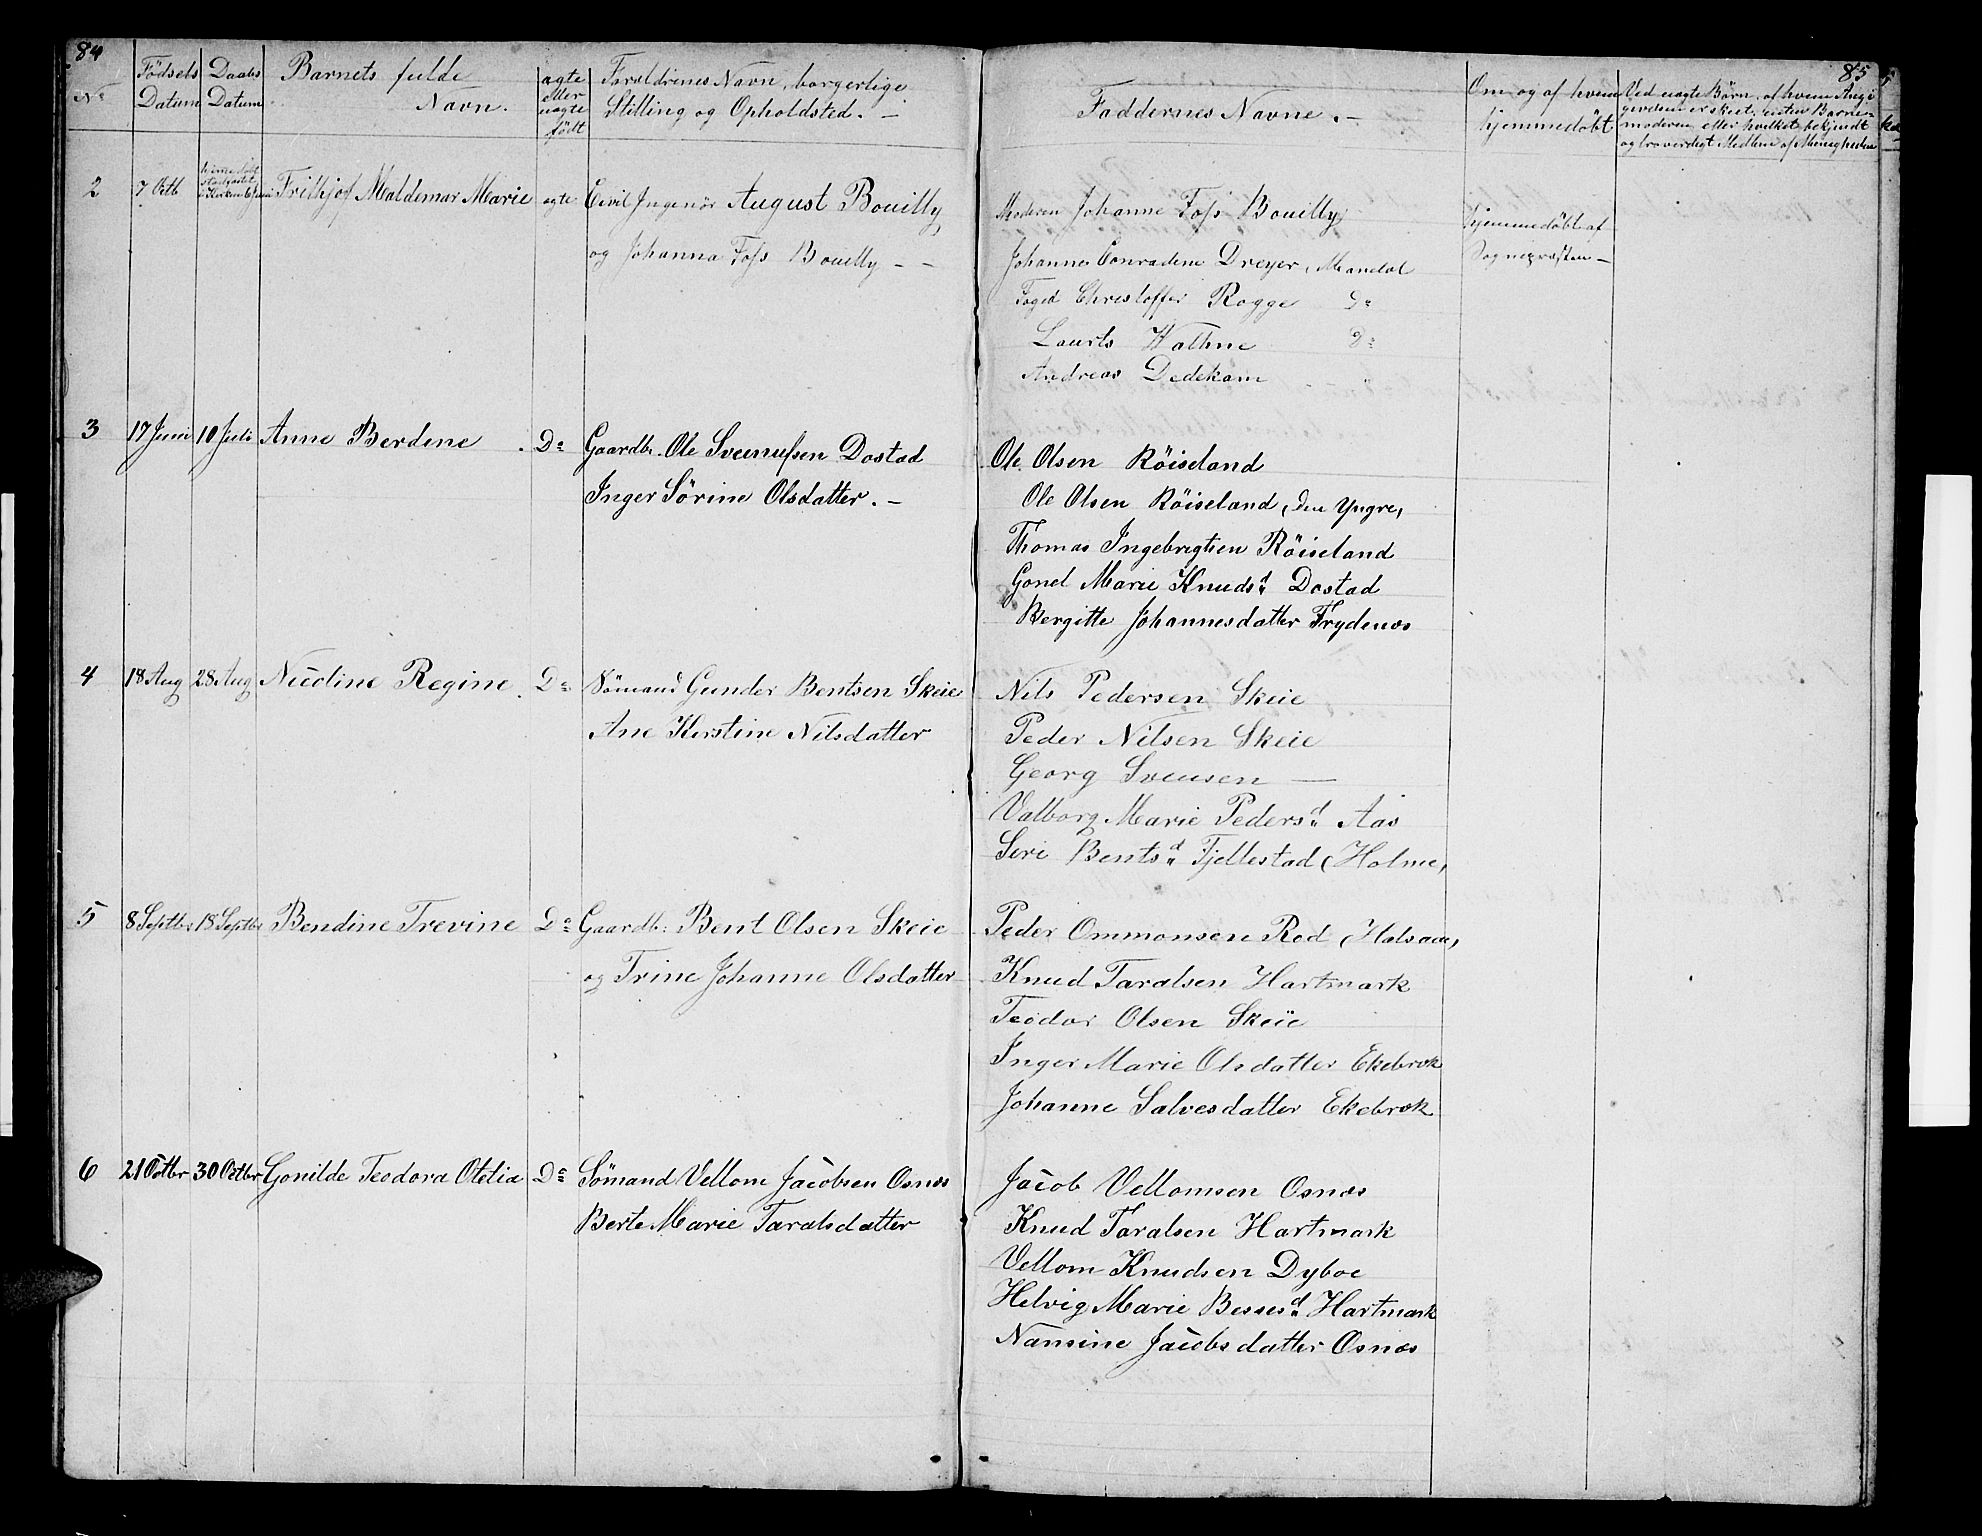 84
No
Födsels
Datum
Daabs
Datum
Barnets fulde
Navn.
ægte
eller
uægte
født
Forældrenes Navn, borgerlige
Stilling og Opholdsted. –
Faddernes Navne. –
Om og af hvem
hjemmedöbt
Ved uægte Børn, af hvem Angi-
givelsen er skeet, enten Barne-
moderen eller hvilket bekjendt
og troværdigt Medlem af Menigheden
85
2
7 Octb
hjemedöbt
stadfæstet
i Kirken 6 Juni
Frithjof Maldemar Marie
ægte
Civil Ingeniör August Bouilly
og Johanna Foss Bouilly – –
Moderen Johanne Foss Bouilly
Johanne Conradine Dreyer, Mandal
Foged Christoffer Rogge Do
Laurts Wathne Do
Andreas Dedekam
hjemmedöbt af
Sognepræsten –
3
17 Juni
10 Juli
Anne Berdene
Do
Gaardb. Ole Sveinussen Dostad
Inger Sörine Olsdatter. –
Ole Olsen Röiseland
Ole Olsen Röiseland, den Yngre,
Thomas Ingebrigtsen Röiseland
Gonel Marie Knudsd Dostad
Bergitte Johannesdatter Frydenæs
4
18 Aug
28 Aug
Nicoline Regine
Do
Sömand Gunder Bentsen Skeie
Ane Kerstine Nilsdatter
Nils Pedersen Skeie
Peder Nilsen Skeie
Georg Svensen —
Valborg Marie Pedersd Aas
Seri Bentsd Fjellestad (Holme,
5
8 Septbr
18 Septbr
Bendine Trevine
Do
Gaardb: Bent Olsen Skeie
og Trine Johanne Olsdatter
Peder Ommonsen Rod (Halsaae,
Knud Taralsen Hartmark
Teodor Olsen Skeie
Inger Marie Olsdatter Ekebrok
Johanne Salvesdatter Ekebrok
6
21 Octbr
30 Octbr
Gonilde Teodora Otelia
Do
Sömand Vellom Jacobsen Osnæs
Berte Marie Taralsdatter
Jacob Vellomsen Osnæs
Knud Taralsen Hartmark
Vellom Knudsen Dyboe
Helvig Marie Bessesd Hartmark
Nansine Jacobsdatter Osnæs